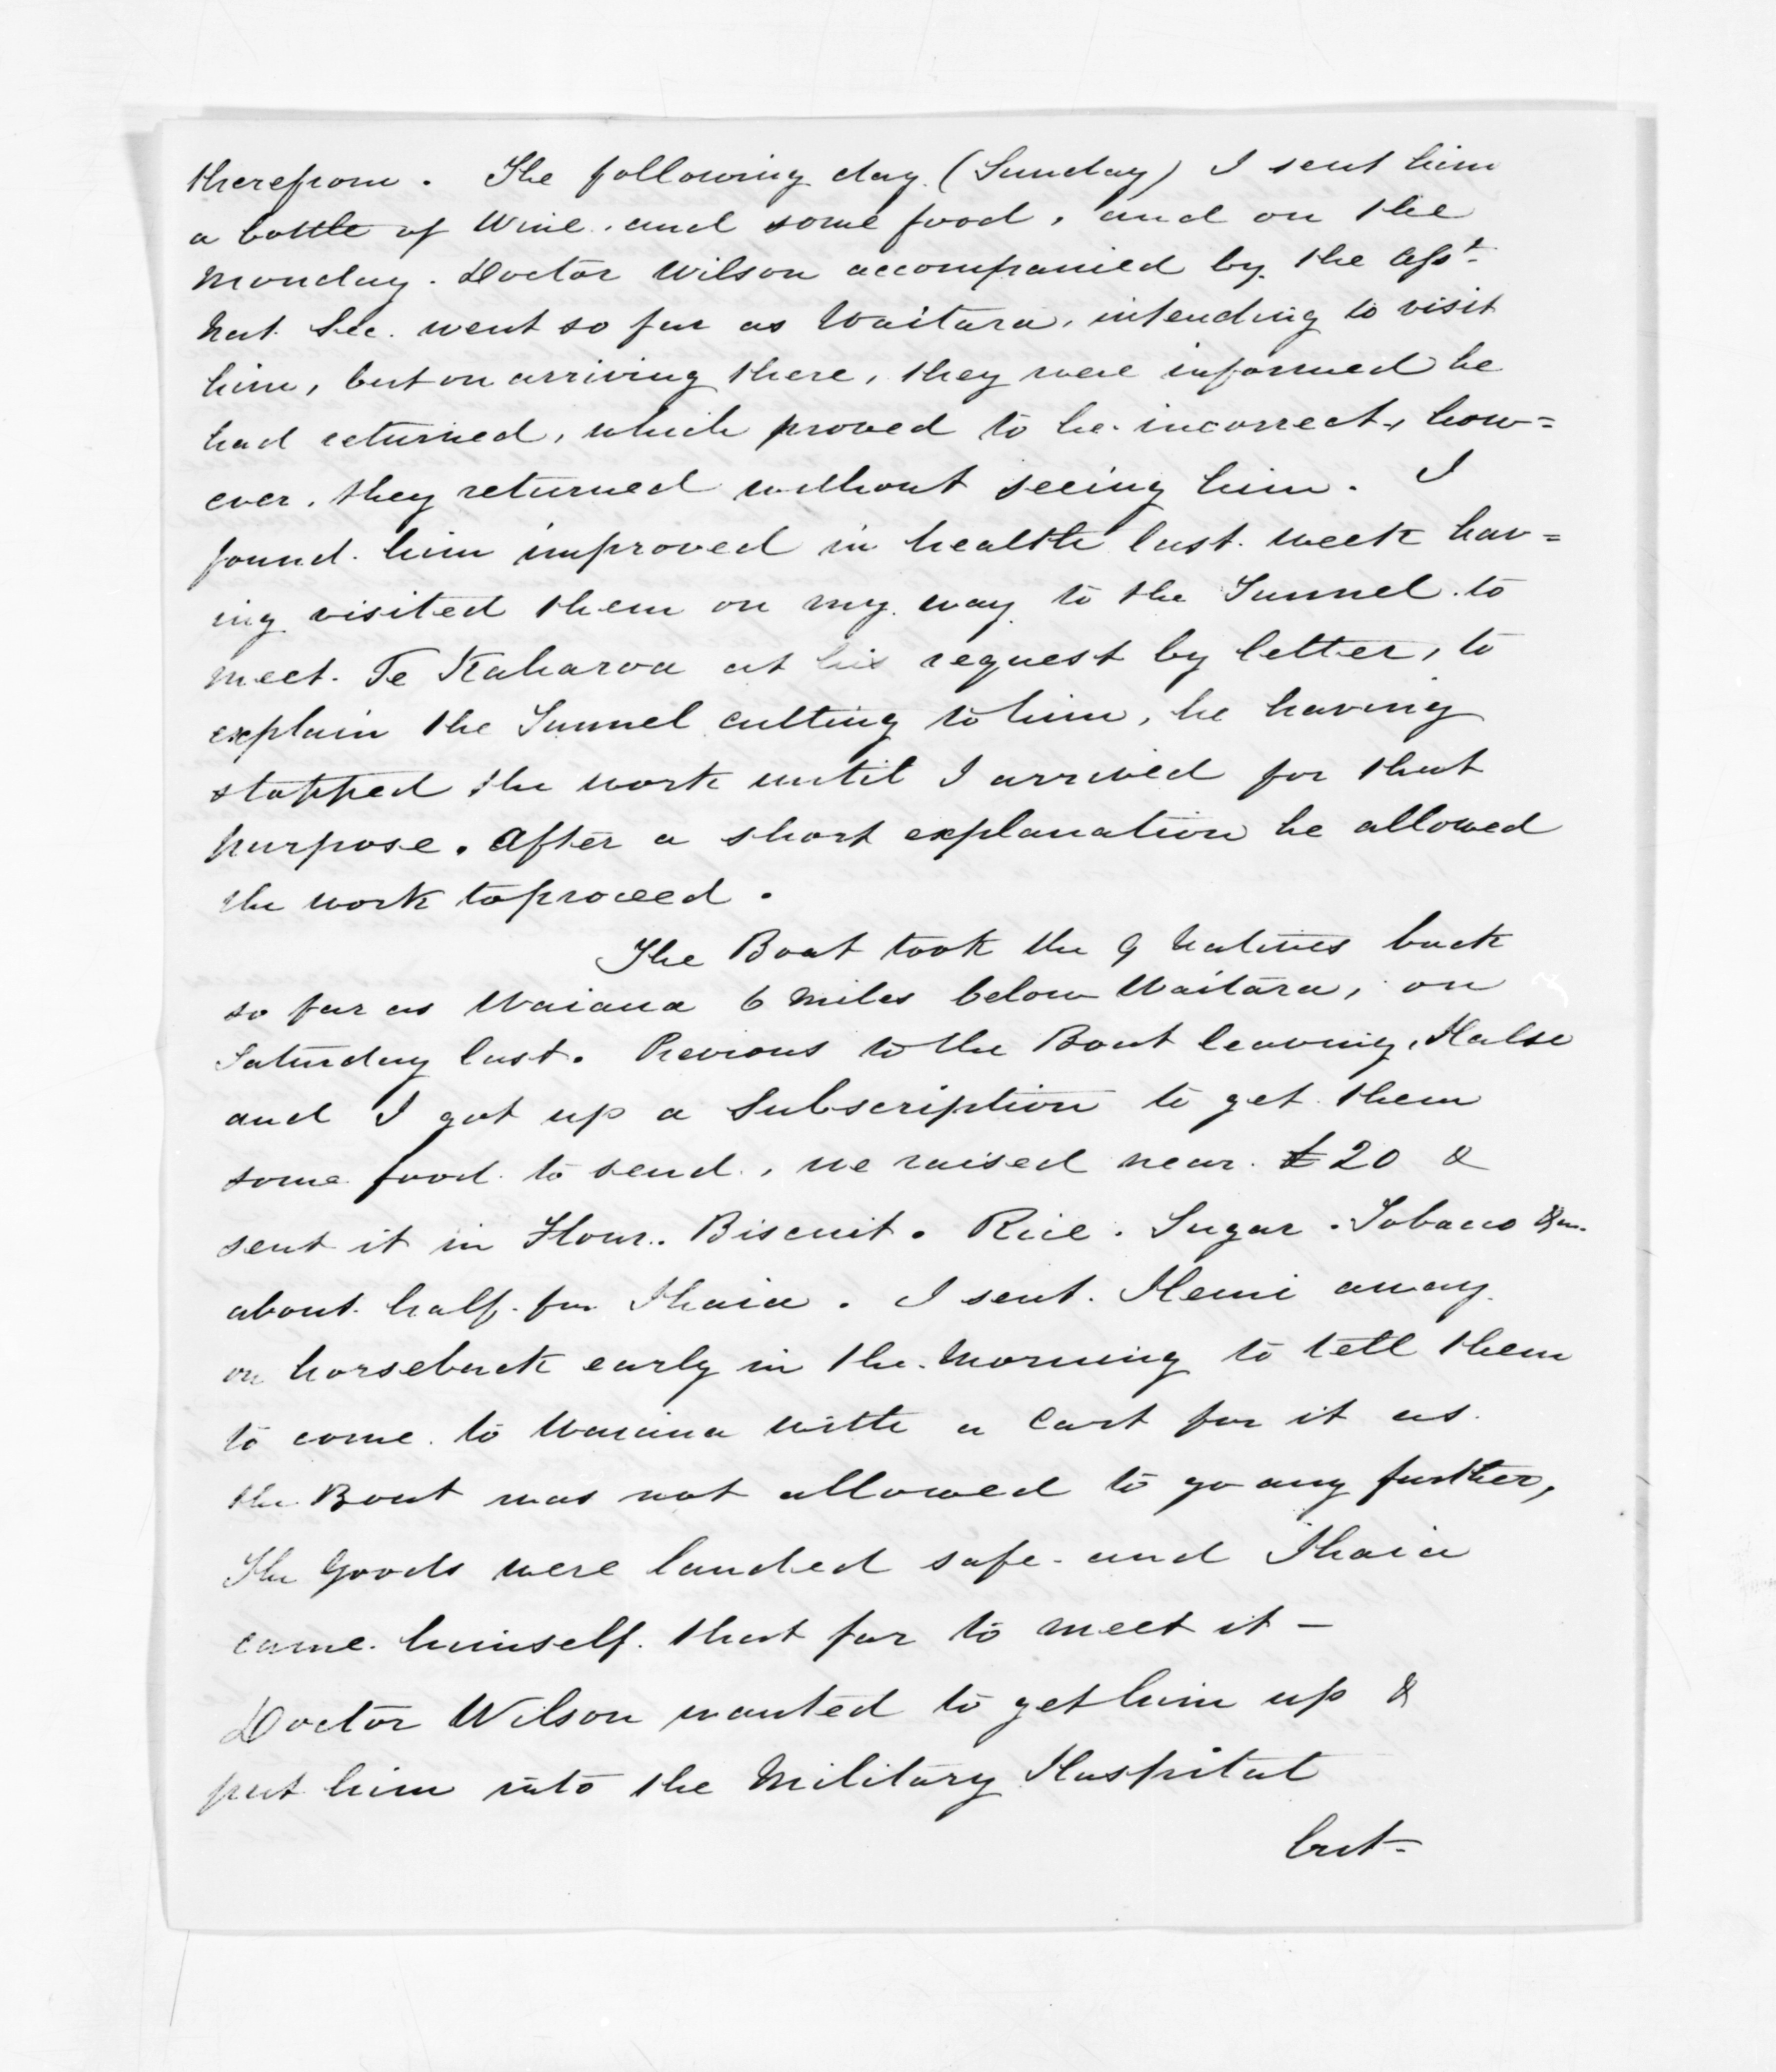 therefrom. The following day (Sunday) I sent him
a bottle of Wine. and some food, and on the
Monday. Doctor Wilson accompanied by the Asst.
Nat. Sec. went so far as Waitara, intending to visit
him, but on arriving there, they were informed he
had returned, which proved to be incorrect, how=
ever, they returned without seeing him. I
found him improved in health last week hav=
ing visited them on my way to the Tunnel to
meet Te Kaharoa at his request by letter, to
explain the Tunnel cutting to him, he having
stopped the work until I arrived for that
purpose. After a short explanation he allowed
the work to proceed.
The Boat took the 9 Natives back
so far as Waiana 6 Miles below Waitara, on
Saturday last. Previous to the Boat leaving, Halse
and I got up a Subscription to get them
some food to send, we raised near £20 &
sent it in Flour. Biscuit. Rice. Sugar. Tobacco &c.
about half for Ihaia. I sent Hemi away
on horseback early in the Morning to tell them
to come to Waiana with a Cart for it as
the Boat was not allowed to go any further,
The Goods were landed safe and Ihaia
came himself that far to meet it —
Doctor Wilson wanted to get him up &
put him into the Military Hospital
but-